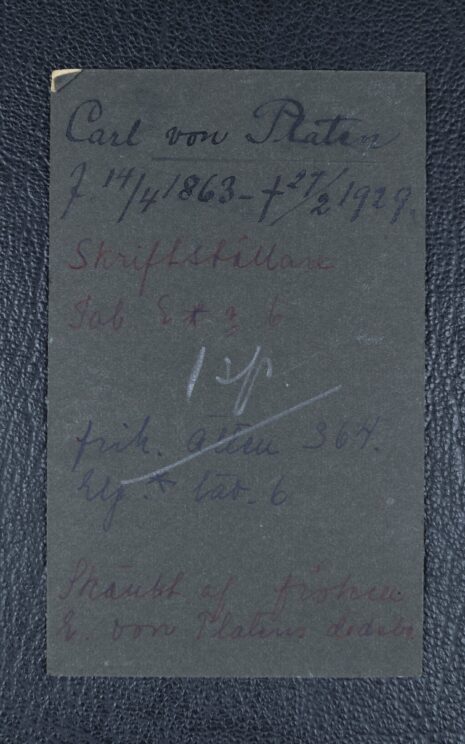 Carl von Platen
f. 14/4 1863 - † 27/2 1929.
Skriftställare
Tab E * 6
frih. ätten 364.
* tab. 6
Skänkt af fröken
E. von Platens dödsbo